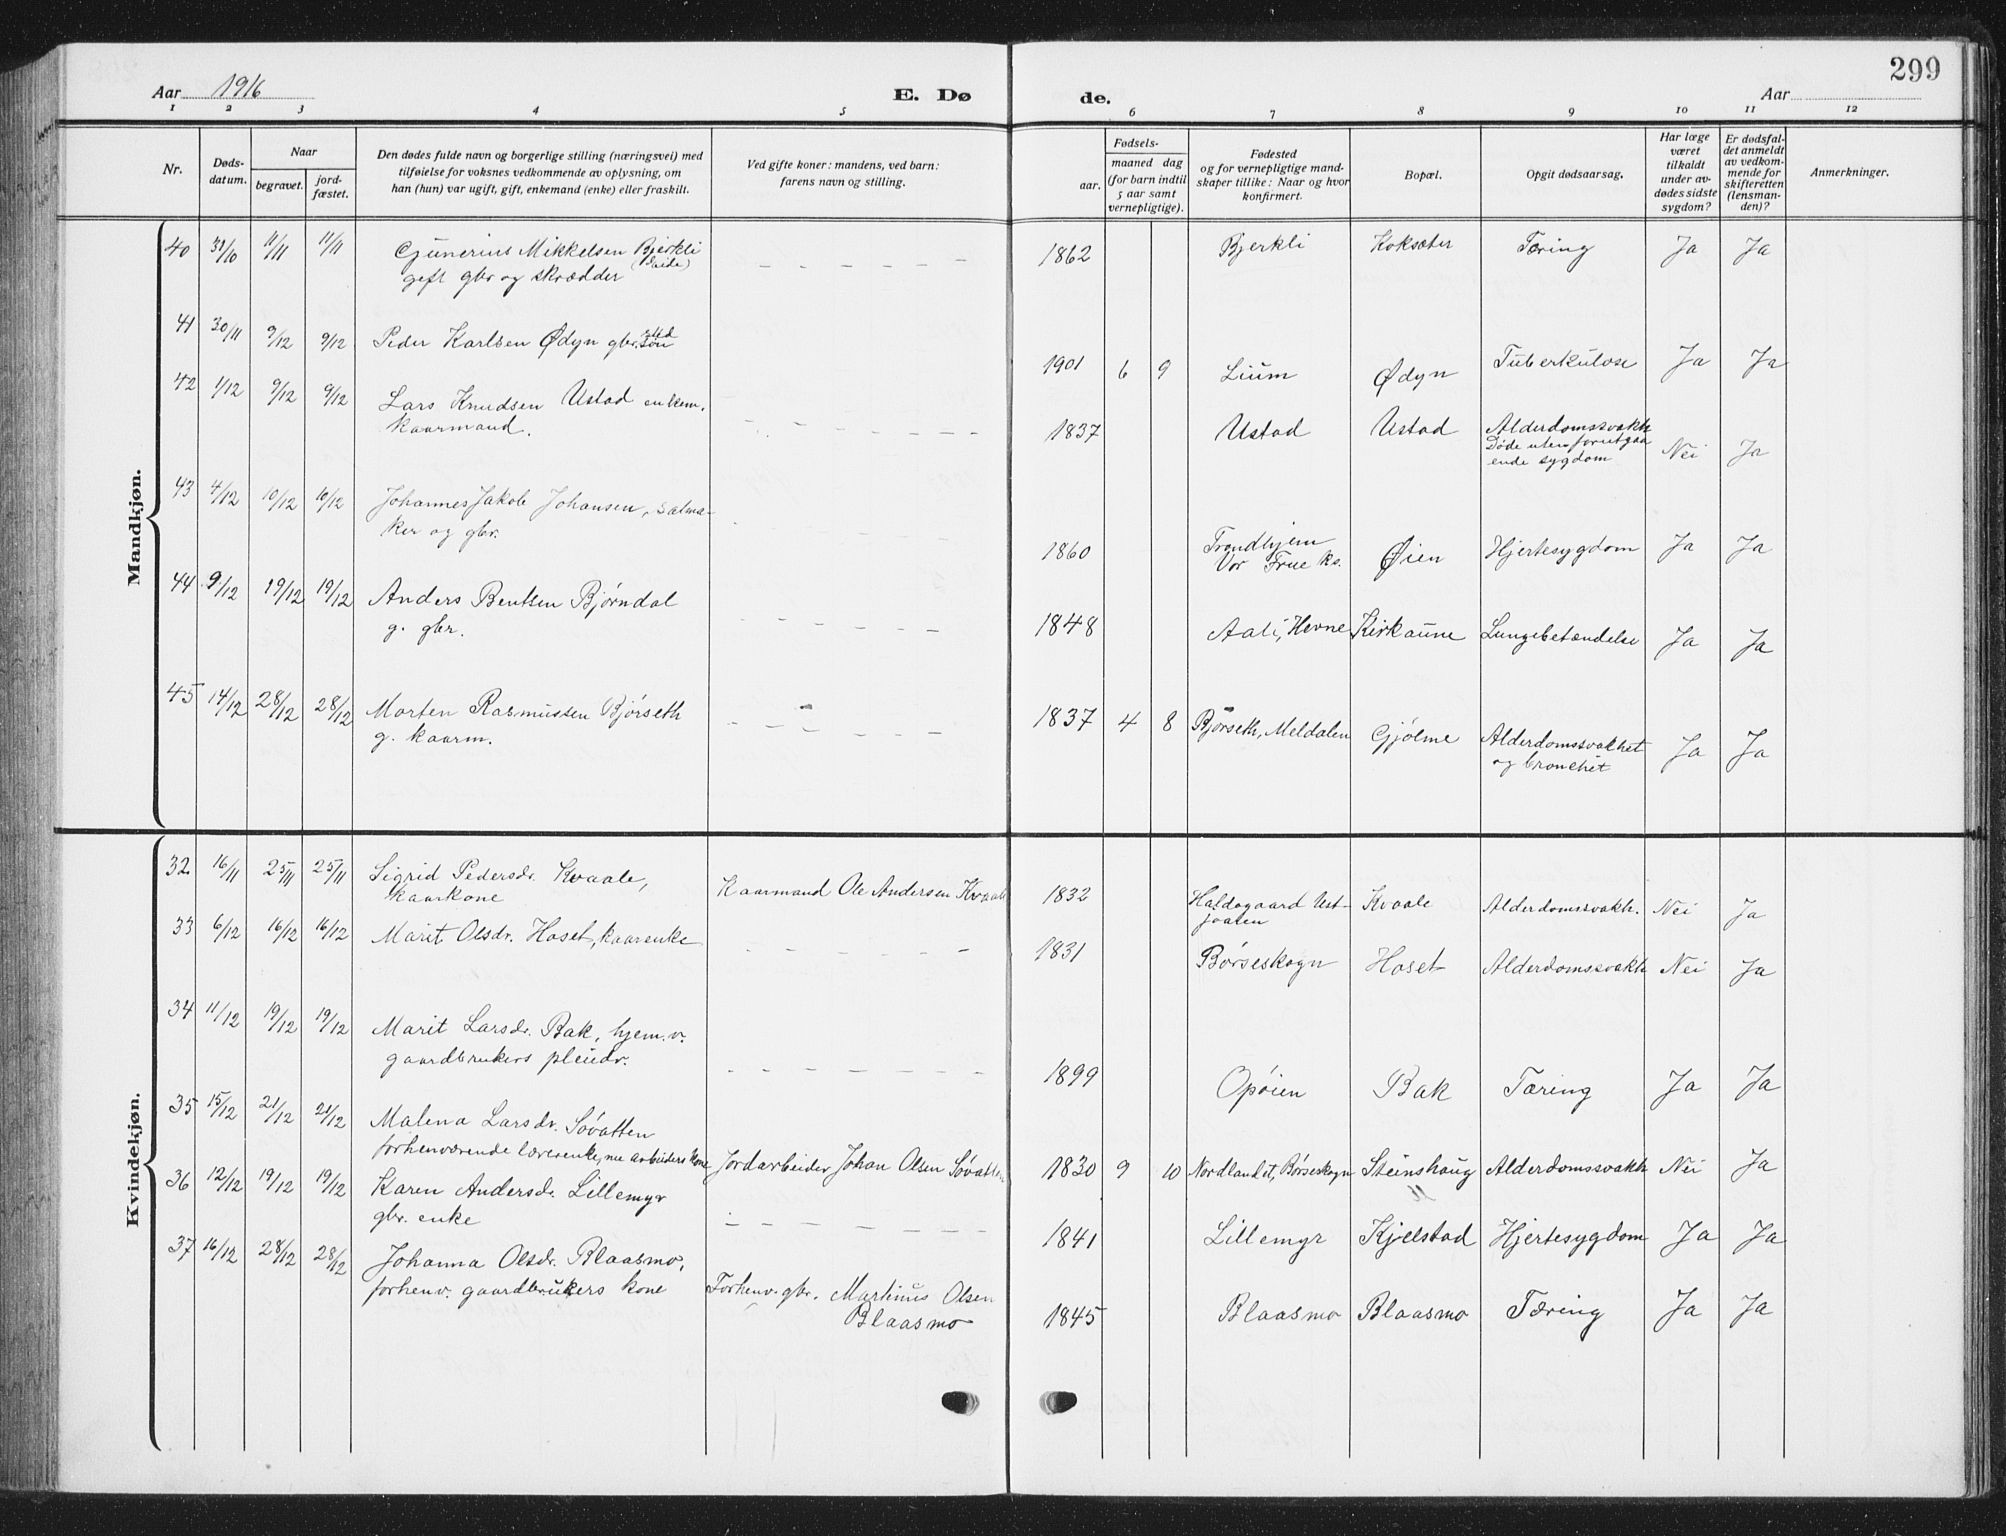 299
Aar 1916
E. Dø
de.
Aar
1 2 3 4 5 6 7 8 9 10 11 12
Nr.
Døds-
datum.
Naar
begravet.
jord-
fæstet.
Den dødes fulde navn og borgerlige stilling (næringsvei) med
tilføielse for voksnes vedkommende av oplysning, om
han (hun) var ugift, gift, enkemand (enke) eller fraskilt.
Ved gifte koner: mandens, ved barn:
farens navn og stilling.
Fødsels-
aar.
maaned dag
(for barn indtil
5 aar samt
vernepligtige).
Fødested
og for vernepligtige mand-
skaper tillike: Naar og hvor
konfirmert.
Bopæl.
Opgit dødsaarsag.
Har læge
været
tilkaldt
under av-
dødes sidste
sygdom?
Er dødsfal-
det anmeldt
av vedkom-
mende for
skifteretten
(lensman-
den)?
Anmerkninger.
Mandkjøn.
40 31/10 11/11 11/11 Gunerius Mikkelsen Bjerkli 1862 Bjerkli Koksæter Tæring Ja Ja
gift gbr og skrædder
41 30/11 9/12 9/12 Peder Karlsen Ødyn gbr. sted søn 1901 6 9 Lium Ødyn Tuberkulose Ja Ja
42 1/12 9/12 9/12 Lars Knudsen Ustad enkem. 1837 Ustad Ustad Alderdomssvakh
kaarmand. Døde uten forutgaa
ende sygdom Nei Ja
43 4/12 10/12 10/12 Johannes Jakob Johansen, salma-
ker og gbr. 1860 Trondhjem
Vor Frue ks. Øien Hjertesygdom Ja Ja
44 9/12 19/12 19/12 Anders Bentsen Bjørndal
g. gbr. 1848 Aali, Hevne Kirkaune Lungebetændelse Ja Ja
45 14/12 28/12 28/12 Morten Rasmussen Bjørseth
g. kaarm. 1837 4 8 Bjørseth, Meldalen Gjølme Alderdomssvakhet
og bronchit Ja Ja
Kvindekjøn.
32 16/11 25/11 25/11 Sigrid Pedersdr. Kvaale,
kaarkone Kaarmand Ole Andersen Kvaale 1832 Haldogaard Ust-
jaalen Kvaale Alderdomssvakh. Nei Ja
33 6/12 16/12 16/12 Marit Olsdr. Hoset, kaarenke 1831 Børseskogn Hoset Alderdomssvakh Nei Ja
34 11/12 19/12 19/12 Marit Larsdr. Bak, hjem.v.
gaardbrukers pleiedr. 1899 Opøien Bak Tæring Ja Ja
35 15/12 21/12 21/12 Malena Larsdr. Søvatten
forhenværende lærerenke, nu arbeiders kone Jordarbeider Johan Olsen Søvatten 1830 9 10 Nordlandet, Børseskogn Steinshaug Alderdomssvakh Nei Ja
36 12/12 19/12 19/12 Karen Andersdr. Lillemyr
gbr. enke 1841 Lillemyr Kjelstad Hjertesygdom Ja Ja
37 16/12 28/12 28/12 Johanna Olsdr. Blaasmo,
forhenv. gaardbrukers kone Forhenv. gbr. Martinus Olsen
Blaasmo 1845 Blaasmo Blaasmo Tæring Ja Ja